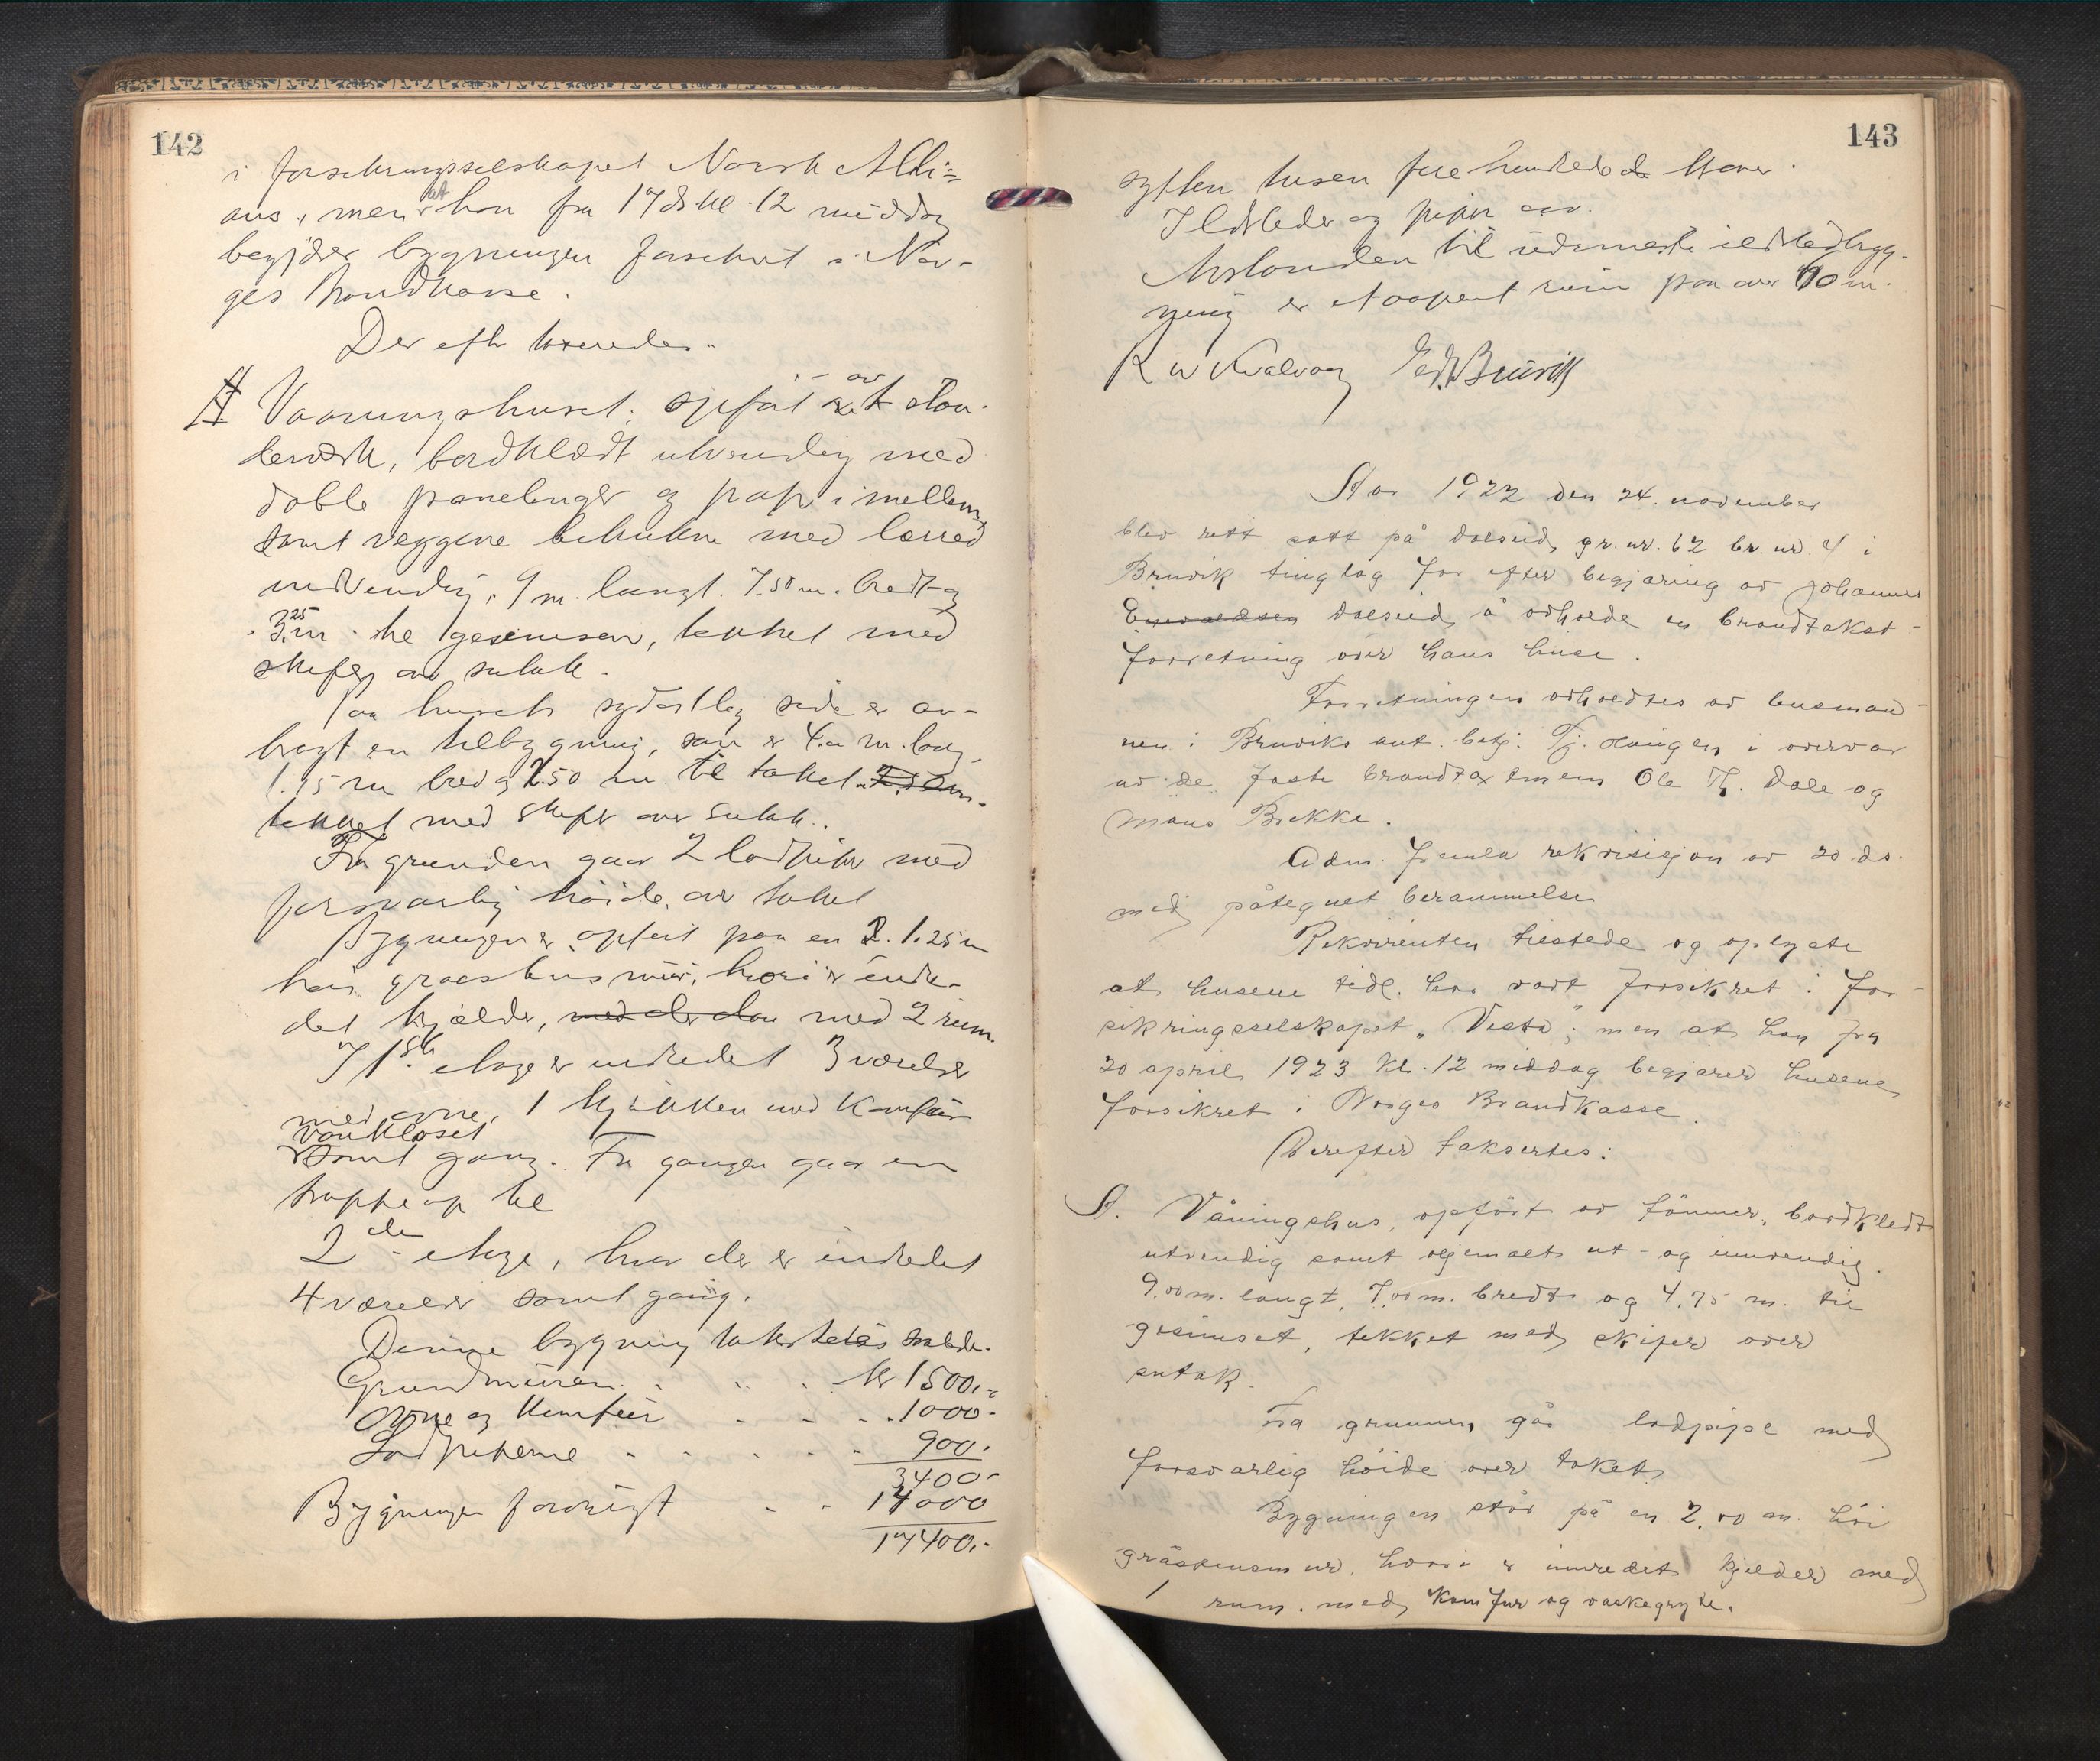 142
i forsikringsselskapet Norsk Alli=
ans, men at han fra 17 ds kl. 12 middag
begjærer bygningen forsikret i Nor-
ges Brandkasse.
Der efter takseredes.
A Vaaningshuset, opført av stav-
keværk, bordklædt utvendig med
doble panelinger og pap imellem
samt veggene betrukne med lærred
indvendig, 9 m. langt. 7.50 m. bredt og
3.25 m. til gesimsen, tekket med
skifer over sutak.
Paa husets sydøstlig side er an-
bragt en tilbygning, som er 4.  m. lang
1.15 m bred og 2.50 m. til taket
tekket med skifer over sutak.
Fra grunden gaar 2 lodpiper med
forsvarlig høide over taket
Bygningen er opført paa en 1.25 m
høi graastensmur, hvori er indre-
det kjælder, med der dan med 2 rum.
I 1ste etage er indredet 3 værelser
med ovne, 1 kjøkken med Komfur
vankloset
samt gang. Fra gangen gaar en
trappe op til
2den etage, hvor der er indredet
4 værelser samt gang.
Denne bygning taksteres saalede.
Grundmuren . . . kr 1500,-
Ovne og Komfur . . . 1000.-
Lodpiperne . . . . . 900.
3400-
Bygningen forøvrigt . . 14000
17400.-
143
sytten tusen fire hundrede Kroner.
Ildsteder og piper
Avstanden til nærmeste ildstedbygg-
ning er et aapent rum paa over 10 m.
R W Kvalvaag
Aar 1922 den 24. november
blev rett satt på Dalseid, gr. nr. 62 br. nr. 4 i
Bruvik tinglag for efter begjæring av Johannes
Dalseid å avholde en brandtakst-
forretning over hans huse.
Forretningen avholdtes av lensman-
nen i Bruviks aut. betj. Tj. Haugen i overvær
av de faste brandtaxtmenn Ole Th. Dale og
Mons Brekke.
Adm. framla rekvisisjon av 20 ds.
med påtegnet berammelse
Rekvirenten tilstede og oplyste
at husene tidl. har vært forsikret i for-
sikringsselskapet „Vesta", men at han fra
20 april 1923 kl. 12 middag begjærer husene
forsikret i Norges Brandkasse.
Derefter taksertes:
A. Våningshus, opført av tømmer, bordkledt
utvendig samt oljemalt ut- og innvendig.
9.00 m. langt, 7.00 m. bredt og 4.75 m. til
gesimset, tekket med skifer over
sutak.
Fra grunnen går lodpipe med
forsvarlig høide over taket.
Bygningen står på en 2.00 m. høi
gråstensmur, hvori er innredet kjelder med
1 rum. med komfur og vaskegryte.